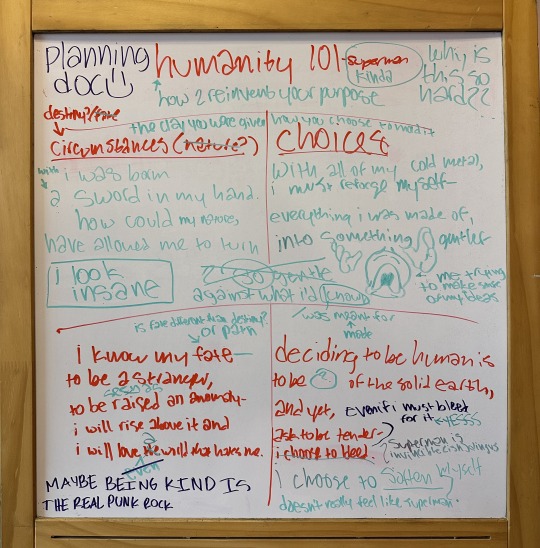 planning doc
humanity 101 - superman kinda
why is this so hard??
how 2 reinvent your purpose
destiny?/fate
the clay you were given
how you choose to mold it
circumstances (nature?)
choices
with i was born
a sword in my hand.
how could my nature,
have allowed me to turn
with all of my cold metal,
i must reforge myself-
everything i was made of,
into something gentler
i look insane
so gentle
against what i'd known
me trying
to make sense
of my ideas
is fate different than destiny?
or path
was meant for
made
i know my fate-
to be a stranger,
seen as
to be raised an anomaly-
i will rise above it and
i will love the wild that hates me.
a
even
deciding to be human is
to be ? of the solid earth,
and yet, even if i must bleed
for it KYESSS
ask to be tender-
i choose to bleed
superman is
i choose to soften myself
doesn't really feel like superman.
MAYBE BEING KIND IS
THE REAL PUNK ROCK